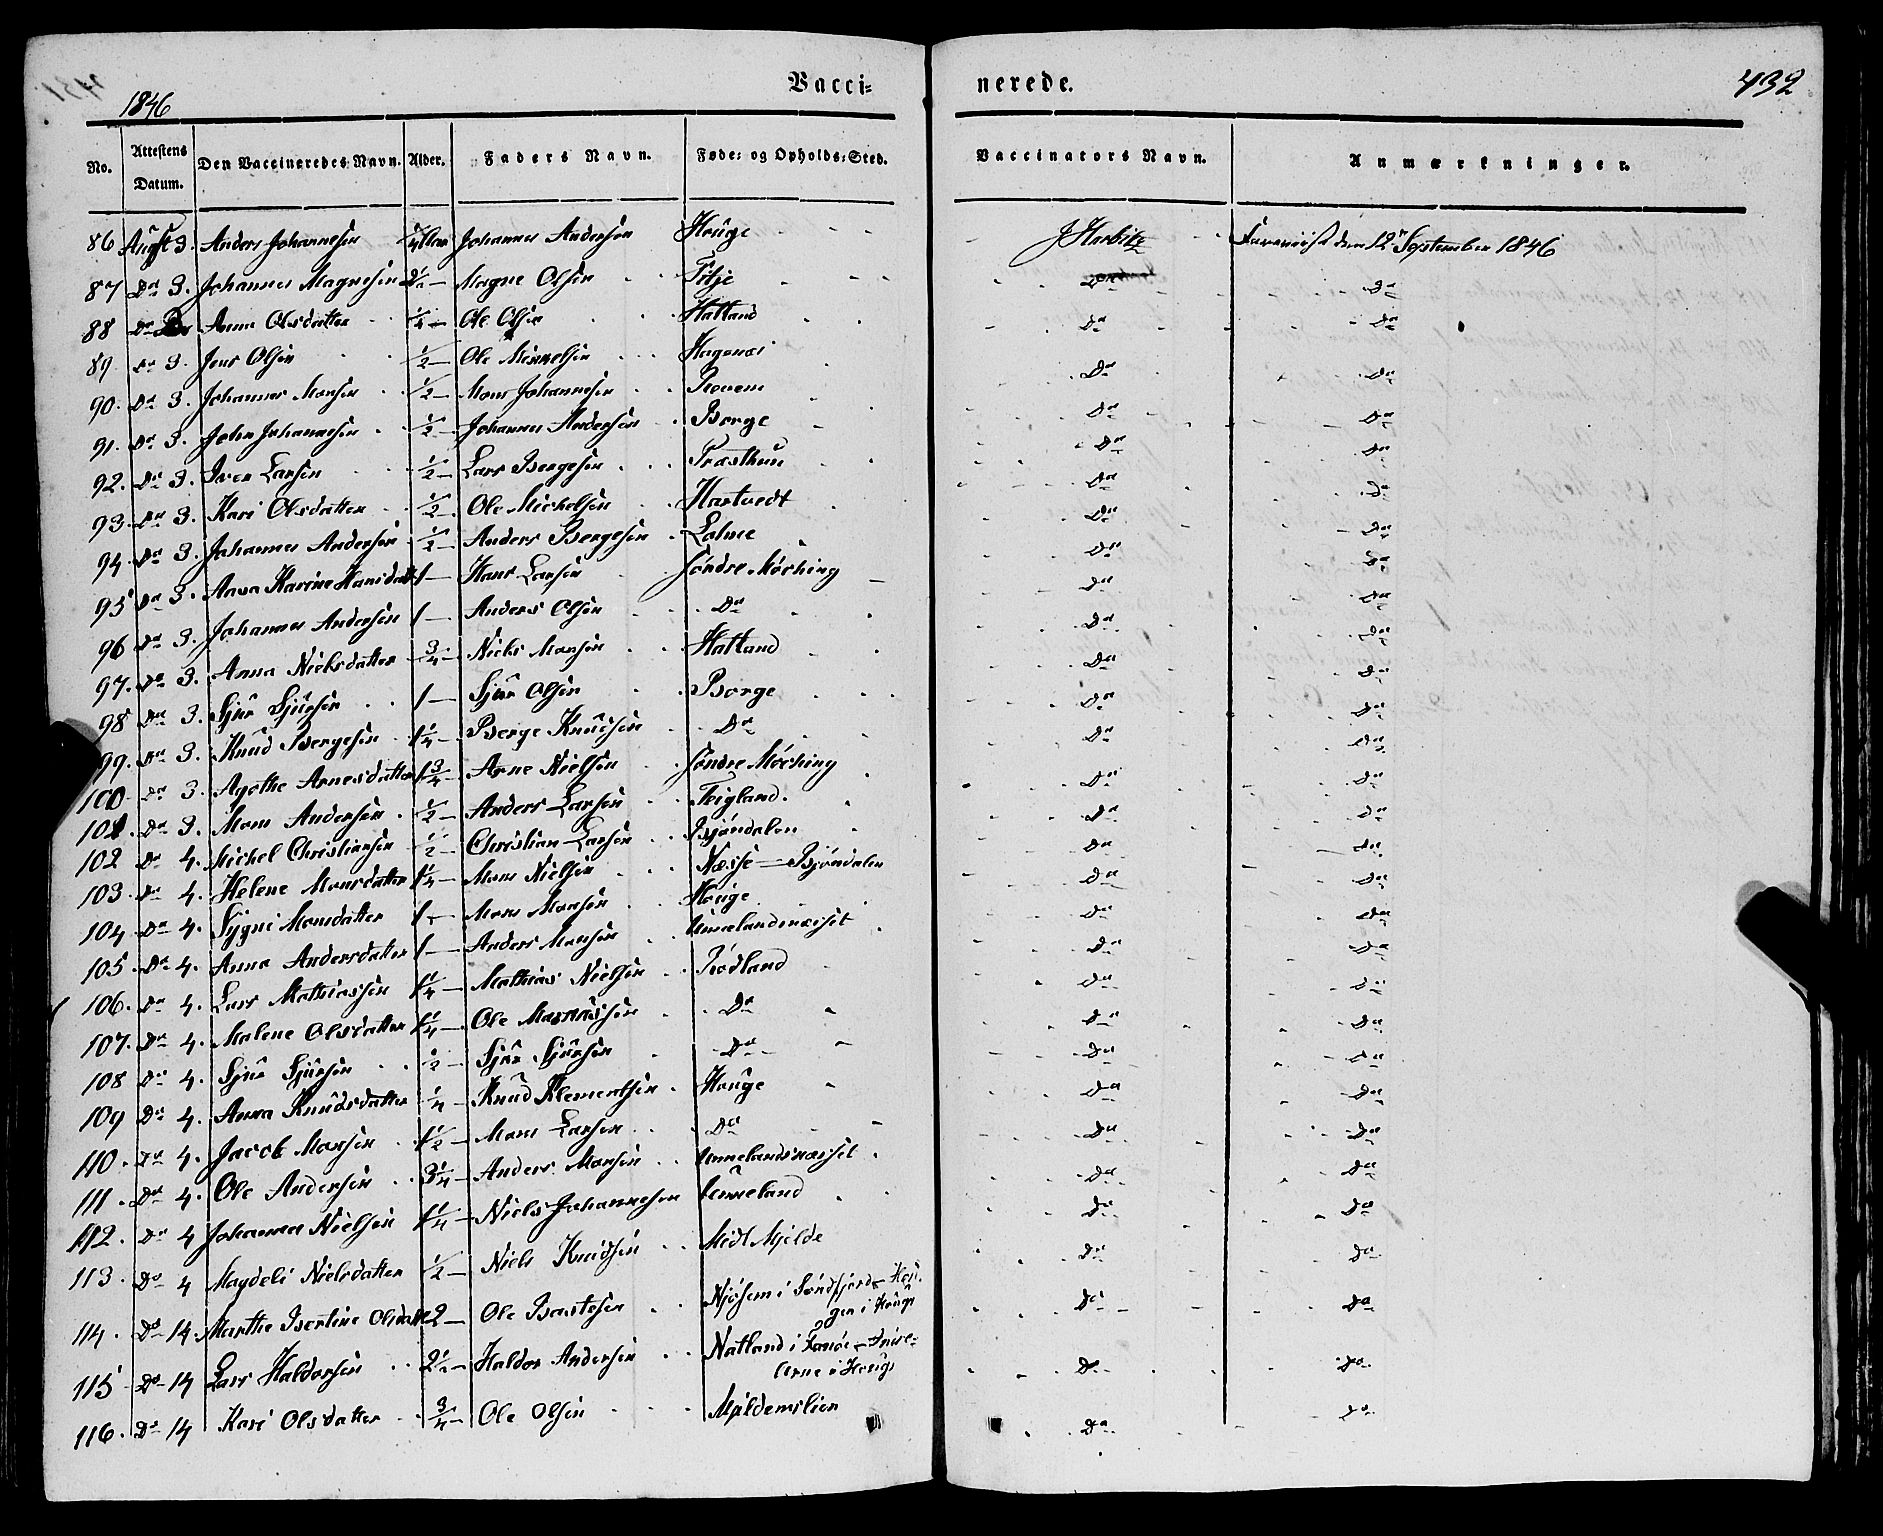 1846
Vacci= nerede. 432
No. Attestens Datum. Den Vaccineredes Navn. Alder. Faders Navn. Føde= og Opholds=Sted. Vaccinators Navn. Anmærkninger.
86 Augst 3. Anders Johannesen Johannes Andersen Houge den 12 September 1846
87 Do 3. Johannes Magnesen Magne Olsen Titje Do Do
88 Do Anna Olsdatter 1/4 Ole Olsen Hatland Do Do
89 Do 3. Jens Olsen 1/2 Ole Do Do
90. Do 3. Johannes Monsen 1/2 Mons Johannesen Do Do
91. Do 3. John Johannesen 1/2 Johannes Andersen Borge Do Do
92. Do 3. Iver Larsen 1/2 Lars Bergesen Do Do
93. Do 3. Kari Olsdatter 1/2 Ole Michelsen Hartvedt Do Do
94. Do 3. Johannes Andersen 1/2 Anders Bergesen Do Do
95 Do 3. Anna Karine Hansdatt 1 Hans Larsen Søndre Mørhing Do Do
96 Do 3. Johannes Andersen 1 Anders Olsen Do Do Do
97. Do 3. Anna Nielsdatter 3/4 Niels Monsen Hatland Do Do
98 Do 3. Sjur Sjursen 1 Sjur Olsen Borge Do Do
99. Do 3. Knud Bergesen 1 1/4 Berge Knudsen Do Do Do
100 Do 3. Agathe Arnesdatter 1 3/4 Arne Nielsen Søndre Mørhing Do Do
101. Do 3. Mons Andersen 1/2 Anders Larsen Teigland. Do Do
102 Do 4. Michel Christiansen 1/2 Christian Larsen Bjøndalen Do Do
103. Do 4. Helene Monsdatter 1 1/4 Mons Nielsen Næsse Bjøndalen Do Do
104 Do 4. Sygni Monsdatter 1 Mons Monsen Houge Do Do
105 Do 4. Anna Andersdatter 1 Anders Monsen Unnelandsnæsset Do Do
106. Do 4. Lars Mathiassen 1 1/4 Mathias Nielsen Rødland Do Do
107. Do 4. Malene Olsdatter 1 1/4 Ole Do Do Do
108 Do 4. Sjur Sjursen 1/2 Sjur Sjursen Do Do Do
109 Do 4. Anna Knudsdatter 1/4 Knud Klementsen Houge Do Do
110. Do 4. Jacob Monsen 1 1/2 Mons Larsen Do Do Do
111. Do 4. Ole Andersen 3 1/4 Anders Monsen Unnelandsnæsset Do Do
112. Do 4 Johannes Nielsen 1 1/4 Niels Johannesen Unneland Do Do
113. Do 4 Magdeli Nielsdatter 1/2 Niels Knudsen Midt Mjelde Do Do
114. Do 14. Marthe Bertine Olsdatt 2 Ole i Søndfjord
gen i Houge Do Do
115 Do 14 Lars Haldorsen 2 1/2 Haldor Andersen Natland i Fanøe
Arne i Hougs Do Do
116. Do 14 Kari Olsdatter 3/4 Ole Olsen Mjeldemslien Do Do